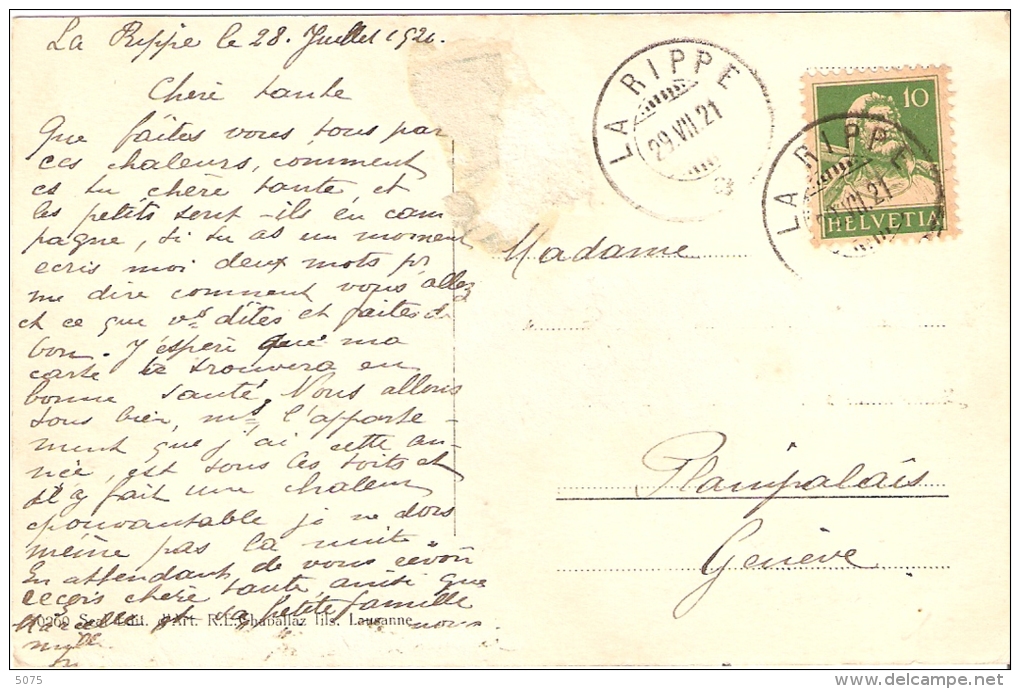 La Rippe le 28. Juillet 1921.
Chère tante
Que faites vous tous par
ces chaleurs, comment
es tu chère tante et
les petits sont-ils en cam
pagne, si tu as un moment
ecris moi deux mots pr
me dire comment vous allez
et ce que vs dîtes et faites de
bon. J'espère que ma
carte te trouvera en
bonne santé. Nous allons
tous bien, mais l'apparte-
ment que j'ai cette an-
née, est sous les toits et
il y fait une chaleur
épouvantable je ne dors
même pas la nuit.
En attendant de vous revoir
reçois chère tante ainsi que
Marcelle et la petite famille
nous
LA RIPPE
29.VII.21
LA RIPPE
29.VII.21
10
HELVETIA
Madame
Plainpalais
Genève
Edit. d'Art. R.E. Chapallaz fils. Lausanne
5075
© delcampe.net